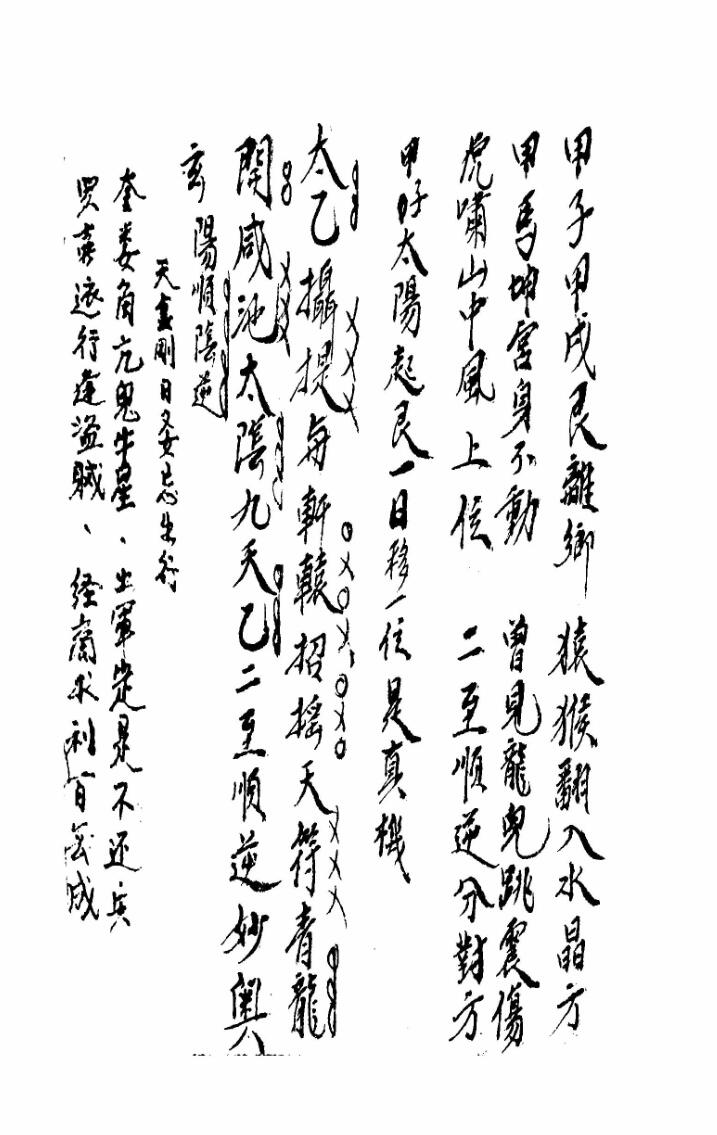 甲子甲戌艮離鄉　猿猴翻入水晶方
甲馬坤宮身不動　曾見龍兔跳震傷
虎嘯山中風上位　二至順逆分對方
甲子太陽起艮一日移一位是真機
太乙攝提每軒轅招搖天符青龍
開咸池太陰九天乙二至順逆妙奧
玄陽順陰逆
天剛日忌出行
奎婁角亢鬼牛星、出軍定是不还兵
遠行逢盗贼、経商求利百無成